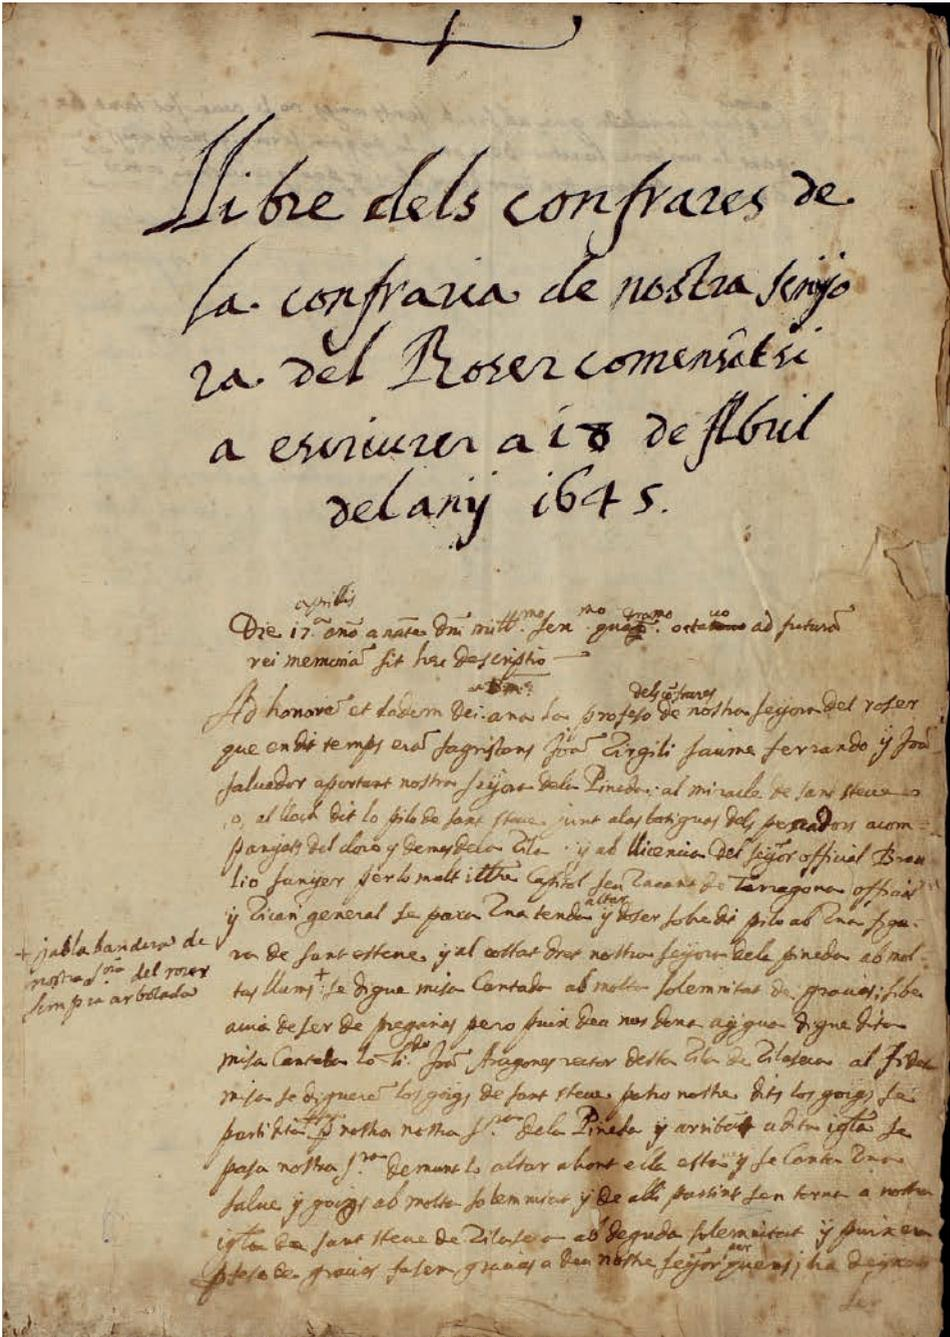 Llibre dels confrares de
la confraria de nostra senyo
ra del Roser comensat si
a escriurer a 18 de Abril
del any 1645.
aprillis
Die 17 ano a nate dni mill.mo sen mo octa uo ad futura
rei memoria sit hec descriptio
dels cofrares
Ad honore et laudem Dei. ana la profeso de nostra seyora del roser
que en dit temps era sagristans Joa Virgili Jaume ferrando y Joa
saluador aportant nostra seyora dela Pineda. al miracle de sant steue
o, al lloch dit lo pilo de sant steue junt a las botigues dels pescadors acom
panyats del clero y demes dela vila. y ab llicencia del seyor official Brau
lio sunyer per lo molt Illtre Capitol seu vacant de Tarragona official
altar
y vicari general se para vna tenda y doser sobre dit pilo ab vna figu
ra de sant esteue y al costat dret nostra seyora dela pineda ab mol
+ y ab la bandera de
nostra sra del roser
sempre arbolada
tas llums + se digue misa Cantada ab molta solemnitat de gracies; si be
auia de ser de pregarias pero puix deu nos dona aygua digue dita
misa Cantada lo Li.do Joa Aragones rector desta vila de Vilaseca al fi dela
misa se digueré los goigs de sant steue patro nostre dits los goigs se
partí nostra nostra s.ra dela Pineda y arribat a dita igla se
posa nostra s.ra demunt lo altar ahont ella esta y se Canta vna
salue y goigs ab molta solemnitat y de alli partint sen torna a nostra
igla de sant steue de Vilaseca ab deguda solemnitat y puix era
profeso de gracies fasem gracias a deu nostre seyor quens ha